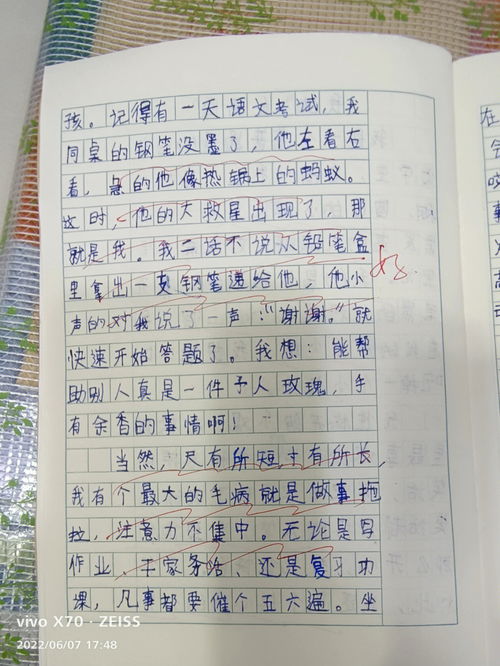 孩。记得有一天语文考试，我
同桌的钢笔没墨了，他左看右
看，急的他像热锅上的蚂蚁。
这时，他的大救星出现了，那
就是我。我二话不说从钢笔盒
里拿出一支钢笔递给他，他小
声的对我说了一声“谢谢。”就
快速开始答题了。我想：能帮
助别人真是一件予人玫瑰，手
有余香的事情啊！
当然，尺有所短寸有所长，
我有个最大的毛病就是做事拖
拉，注意力不集中。无论是写
作业、干家务活、还是复习功
课，凡事都要催个五六遍。坐
好
在
vivo X70 · ZEISS
2022/06/07 17:48